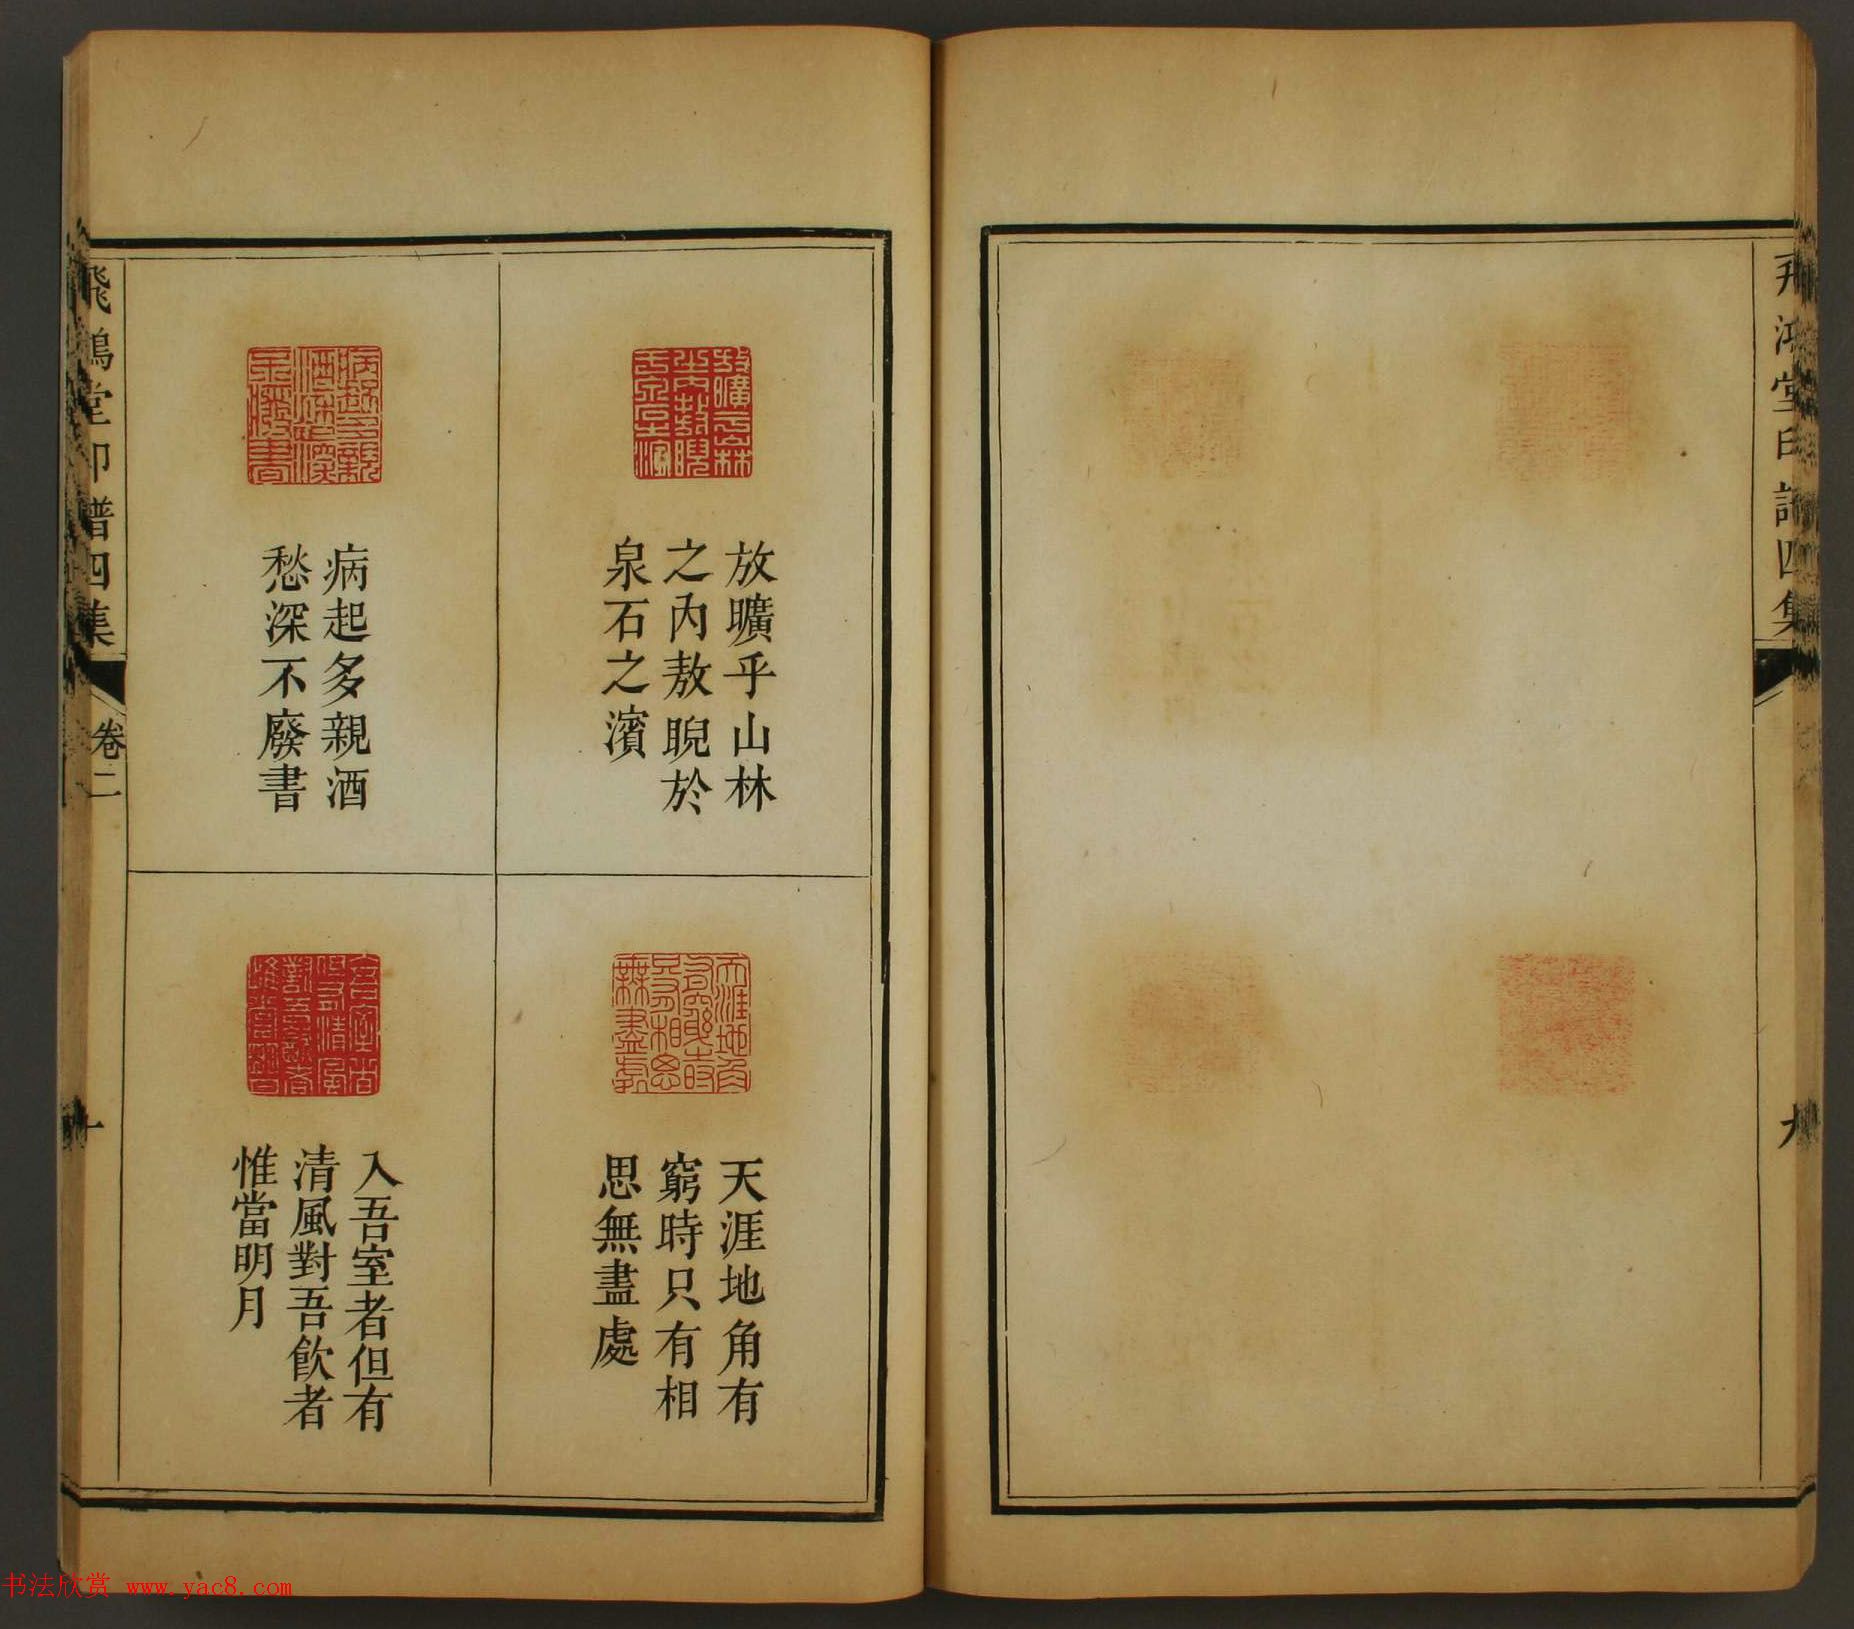 飛鴻堂印譜四集
九
放曠乎山林
之內敖睨於
泉石之濱
病起多親酒
愁深不廢書
天涯地角有
窮時只有相
思無盡處
入吾室者但有
清風對吾飲者
惟當明月
飛鴻堂印譜四集
卷二
十
书法欣赏 www.yac8.com